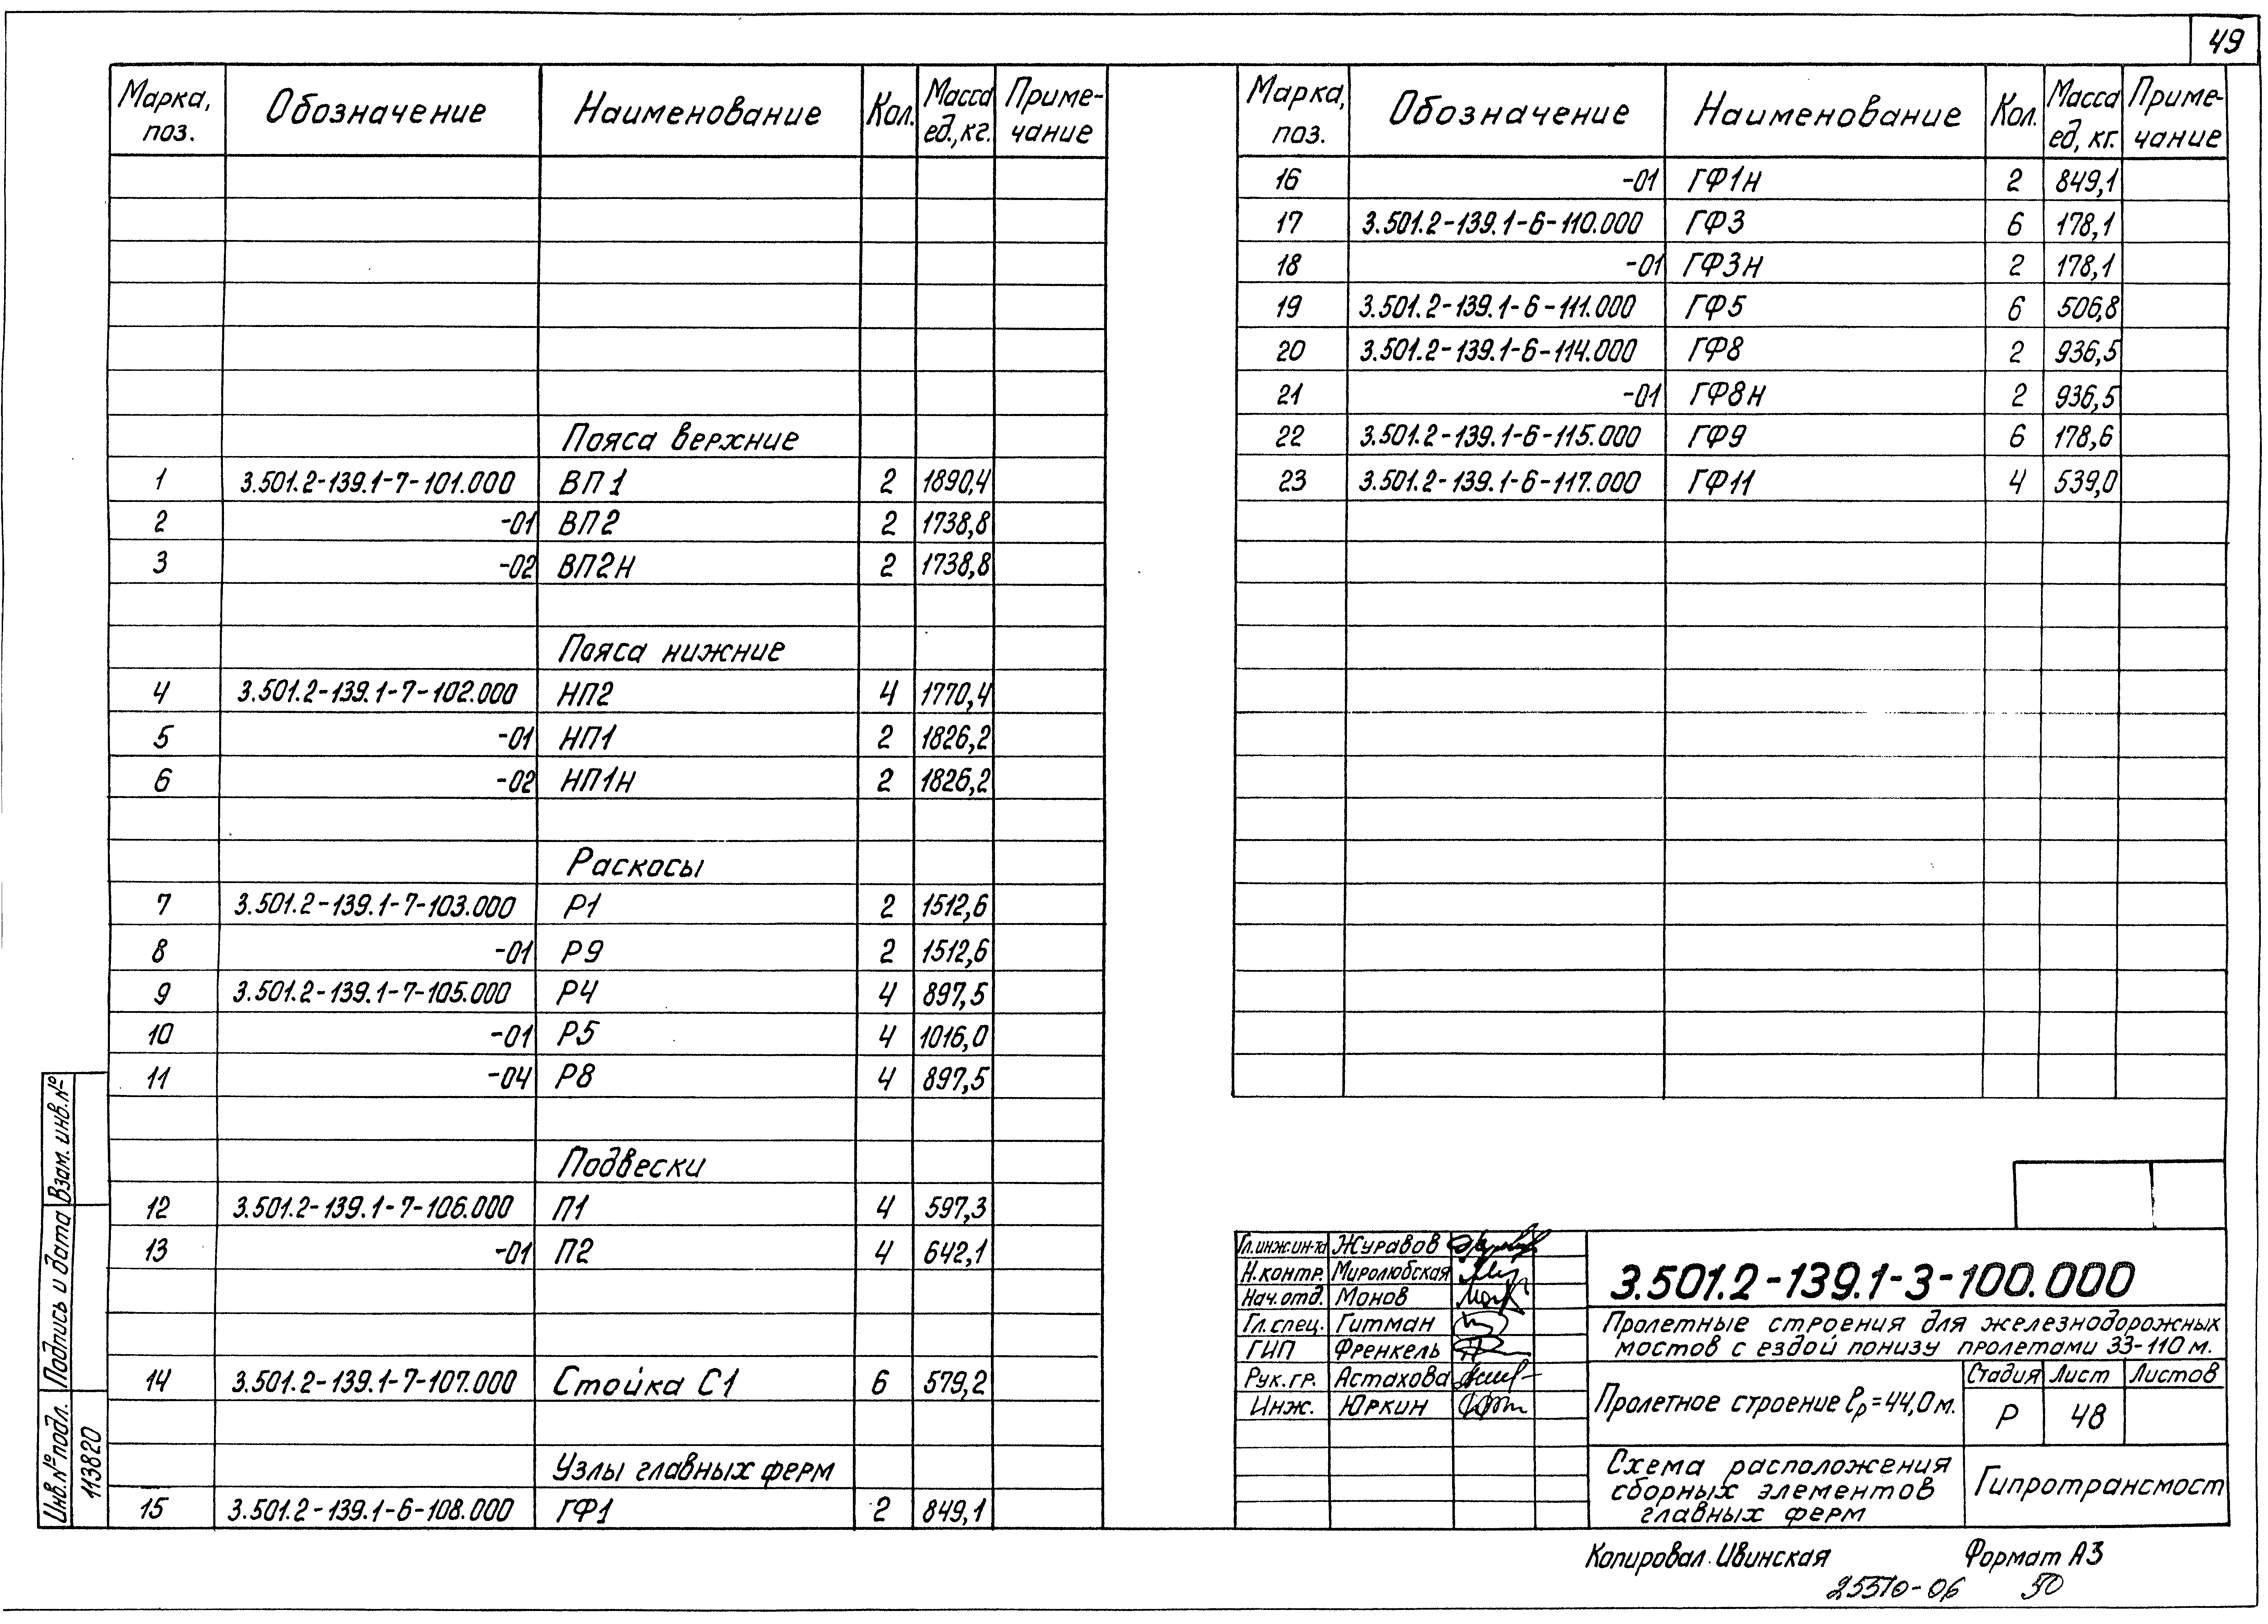 49
Марка, поз. Обозначение Наименование Кол. Масса ед.,кг. Приме-чание
Пояса верхние
1 3.501.2-139.1-7-101.000 ВП1 2 1890,4
2 -01 ВП2 2 1738,8
3 -02 ВП2Н 2 1738,8
Пояса нижние
4 3.501.2-139.1-7-102.000 НП2 4 1770,4
5 -01 НП1 2 1826,2
6 -02 НП1Н 2 1826,2
Раскосы
7 3.501.2-139.1-7-103.000 Р1 2 1512,6
8 -01 Р9 2 1512,6
9 3.501.2-139.1-7-105.000 Р4 4 897,5
10 -01 Р5 4 1016,0
11 -04 Р8 4 897,5
Подвески
12 3.501.2-139.1-7-106.000 П1 4 597,3
13 -01 П2 4 642,1
14 3.501.2-139.1-7-107.000 Стойка С1 6 579,2
Узлы главных ферм
15 3.501.2-139.1-6-108.000 ГФ1 2 849,1
Марка, поз. Обозначение Наименование Кол. Масса ед, кг. Приме-чание
16 -01 ГФ1Н 2 849,1
17 3.501.2-139.1-6-110.000 ГФ3 6 178,1
18 -01 ГФ3Н 2 178,1
19 3.501.2-139.1-6-111.000 ГФ5 6 506,8
20 3.501.2-139.1-6-114.000 ГФ8 2 936,5
21 -01 ГФ8Н 2 936,5
22 3.501.2-139.1-6-115.000 ГФ9 6 178,6
23 3.501.2-139.1-6-117.000 ГФ11 4 539,0
Взам. инв.№
Подпись и дата
Инв.№ подл.
113820
Гл.инж.ин-та Журавов
Н.контр. Миролюбская
Нач.отд. Монов
Гл.спец. Гитман
ГИП Френкель
Рук.гр. Астахова
Инж. Юркин
3.501.2-139.1-3-100.000
Пролетные строения для железнодорожных
мостов с ездой понизу пролетами 33-110 м.
Пролетное строение ℓр=44,0м.
Стадия Лист Листов
Р 48
Схема расположения
сборных элементов
главных ферм
Гипротрансмост
Копировал Ивинская Формат А3
25570-06 50